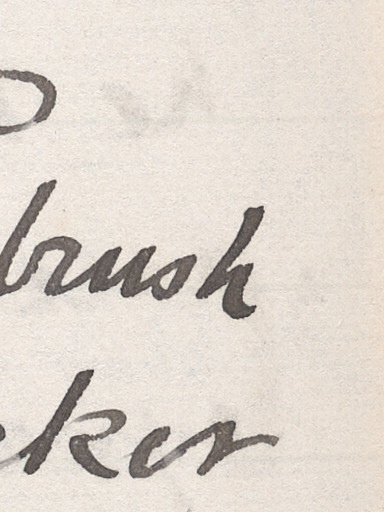 brush
ker